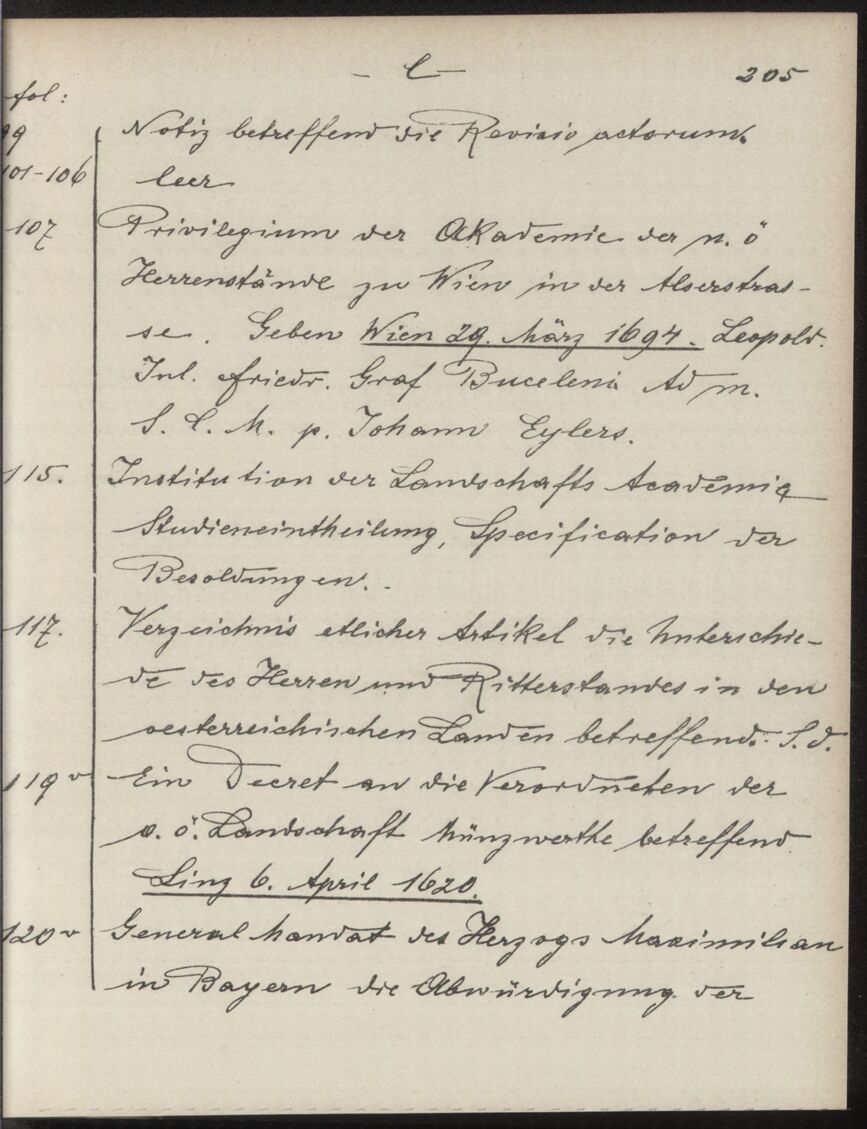 – L – 205
fol:
99 Notiz betreffend die Revisio actorum.
101-106 leer
107 Privilegium der Akademie der n. ö
Herrenstände zu Wien in der Alserstras-
se. Geben Wien 29. März 1694. Leopold.
Jul. Friedr. Graf Buceleni Ad m.
S. C. M. p. Johann Eylers.
115. Institution der Landschafts Academie
Studieneintheilung, Specification der
Besoldungen.
117. Verzeichnis etlicher Artikel die Unterschie-
de des Herren und Ritterstandes in den
oesterreichischen Landen betreffend. S. d.
119v Ein Decret an die Verordneten der
o. ö. Landschaft Münzwerthe betreffend
Linz 6. April 1620.
120v General Mandat des Herzogs Maximilian
in Bayern die Abwürdigung der